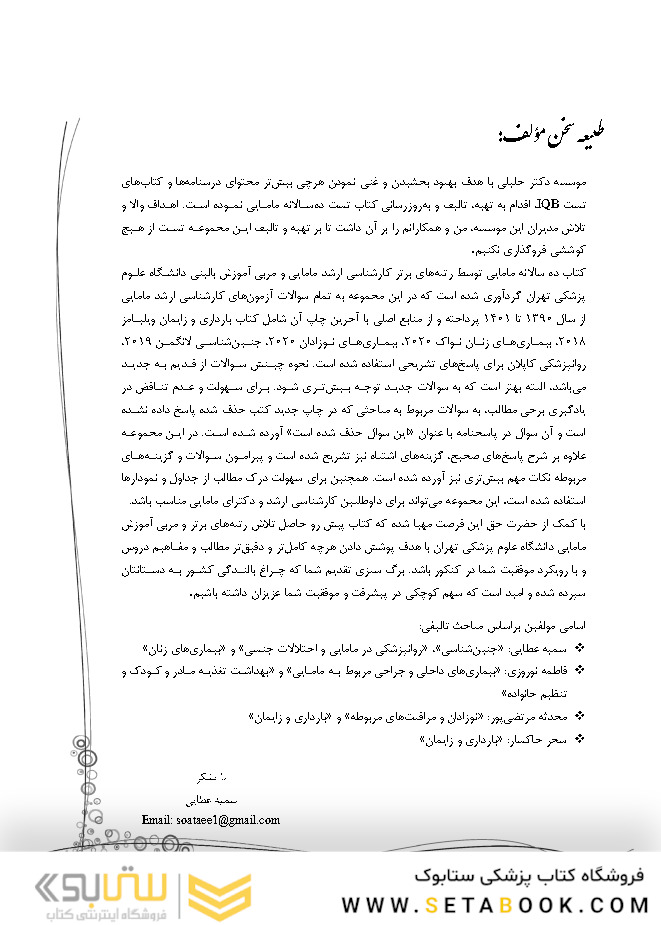 طلیعه سخن مؤلف:
موسسه دکتر خلیلی با هدف بهبود بخشیدن و غنی نمودن هرچی بیش‌تر محتوای درسنامه‌ها و کتاب‌های
تست IQB، اقدام به تهیه، تالیف و به‌روزرسانی کتاب تست ده‌سـالانه مامـایی نمـوده اسـت. اهـداف والا و
تلاش مدیران این موسسه، من و همکارانم را بر آن داشت تا بر تهیه و تالیف ایـن مجموعـه تسـت از هـیچ
کوششی فروگذاری نکنیم.
کتاب ده سالانه مامایی توسط رتبه‌های برتر کارشناسی ارشد مامایی و مربی آموزش بالینی دانشـگاه علـوم
پزشکی تهران گردآوری شده است که در این مجموعه به تمام سوالات آزمون‌های کارشناسی ارشد مامایی
از سال ۱۳۹۰ تا ۱۴۰۱ پرداخته و از منابع اصلی با آخرین چاپ آن شامل کتاب بارداری و زایمان ویلیـامز
۲۰۱۸، بیمـاری‌هـای زنـان نـواک ۲۰۲۰، بیمـاری‌هـای نـوزادان ۲۰۲۰، جنـین‌شناسـی لانگمـن ۲۰۱۹،
روانپزشکی کاپلان برای پاسخ‌های تشریحی استفاده شده است. نحوه چیـنش سـوالات از قـدیم بـه جدیـد
می‌باشد، البته بهتر است که به سوالات جدیـد توجـه بـیش‌تـری شـود. بـرای سـهولت و عـدم تنـاقض در
یادگیری برخی مطالب، به سوالات مربوط به مباحثی که در چاپ جدید کتب حذف شده پاسخ داده نشـده
است و آن سوال در پاسخنامه با عنوان «این سوال حذف شده است» آورده شـده اسـت. در ایـن مجموعـه
علاوه بر شرح پاسخ‌های صحیح، گزینه‌های اشتباه نیز تشریح شده است و پیرامـون سـوالات و گزینـه‌هـای
مربوطه نکات مهم بیش‌تری نیز آورده شده است. همچنین برای سهولت درک مطالب از جداول و نمودارها
استفاده شده است. این مجموعه می‌تواند برای داوطلبین کارشناسی ارشد و دکترای مامایی مناسب باشد.
با کمک از حضرت حق این فرصت مهیا شده که کتاب پیش رو حاصل تلاش رتبه‌های برتر و مربی آموزش
مامایی دانشگاه علوم پزشکی تهران با هدف پوشش دادن هرچه کامل‌تر و دقیق‌تر مطالب و مفـاهیم دروس
و با رویکرد موفقیت شما در کنکور باشد. برگ سبزی تقدیم شما که چـراغ بالنـدگی کشـور بـه دسـتانتان
سپرده شده و امید است که سهم کوچکی در پیشرفت و موفقیت شما عزیزان داشته باشیم.
اسامی مولفین براساس مباحث تالیفی:
❖ سمیه عطایی: «جنین‌شناسی»، «روانپزشکی در مامایی و اختلالات جنسی» و «بیماری‌های زنان»
❖ فاطمه نوروزی: «بیماری‌های داخلی و جراحی مربوط بـه مامـایی» و «بهداشـت تغذیـه مـادر و کـودک و
تنظیم خانواده»
❖ محدثه مرتضی‌پور: «نوزادان و مراقبت‌های مربوطه» و «بارداری و زایمان»
❖ سحر خاکسار: «بارداری و زایمان»
با تشکر
سمیه عطایی
Email: soataee1@gmail.com
فروشگاه کتاب پزشکی ستابوک
WWW.SETABOOK.COM
ستابوک
فروشگاه اینترنتی کتاب